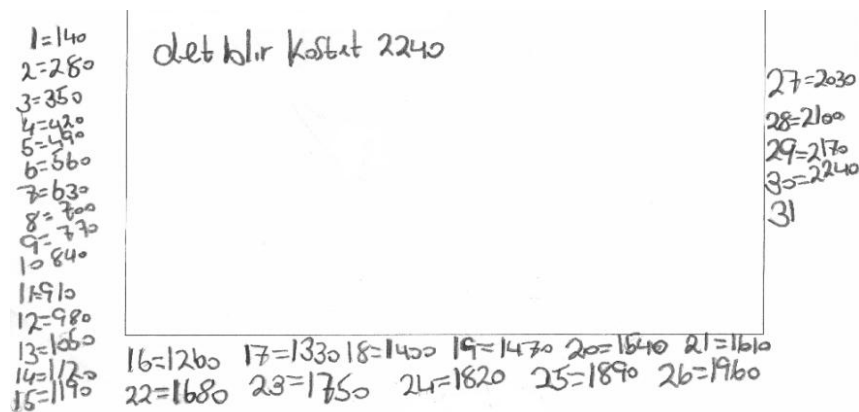 det blir kostat 2240
1=140
2=280
3=350
4=420
5=490
6=560
7=630
8=700
9=770
10 840
11=910
12=980
13=1050
14=1120
15=1190
16=1260 17=1330 18=1400 19=1470 20=1540 21=1610
22=1680 23=1750 24=1820 25=1890 26=1960
27=2030
28=2100
29=2170
30=2240
31